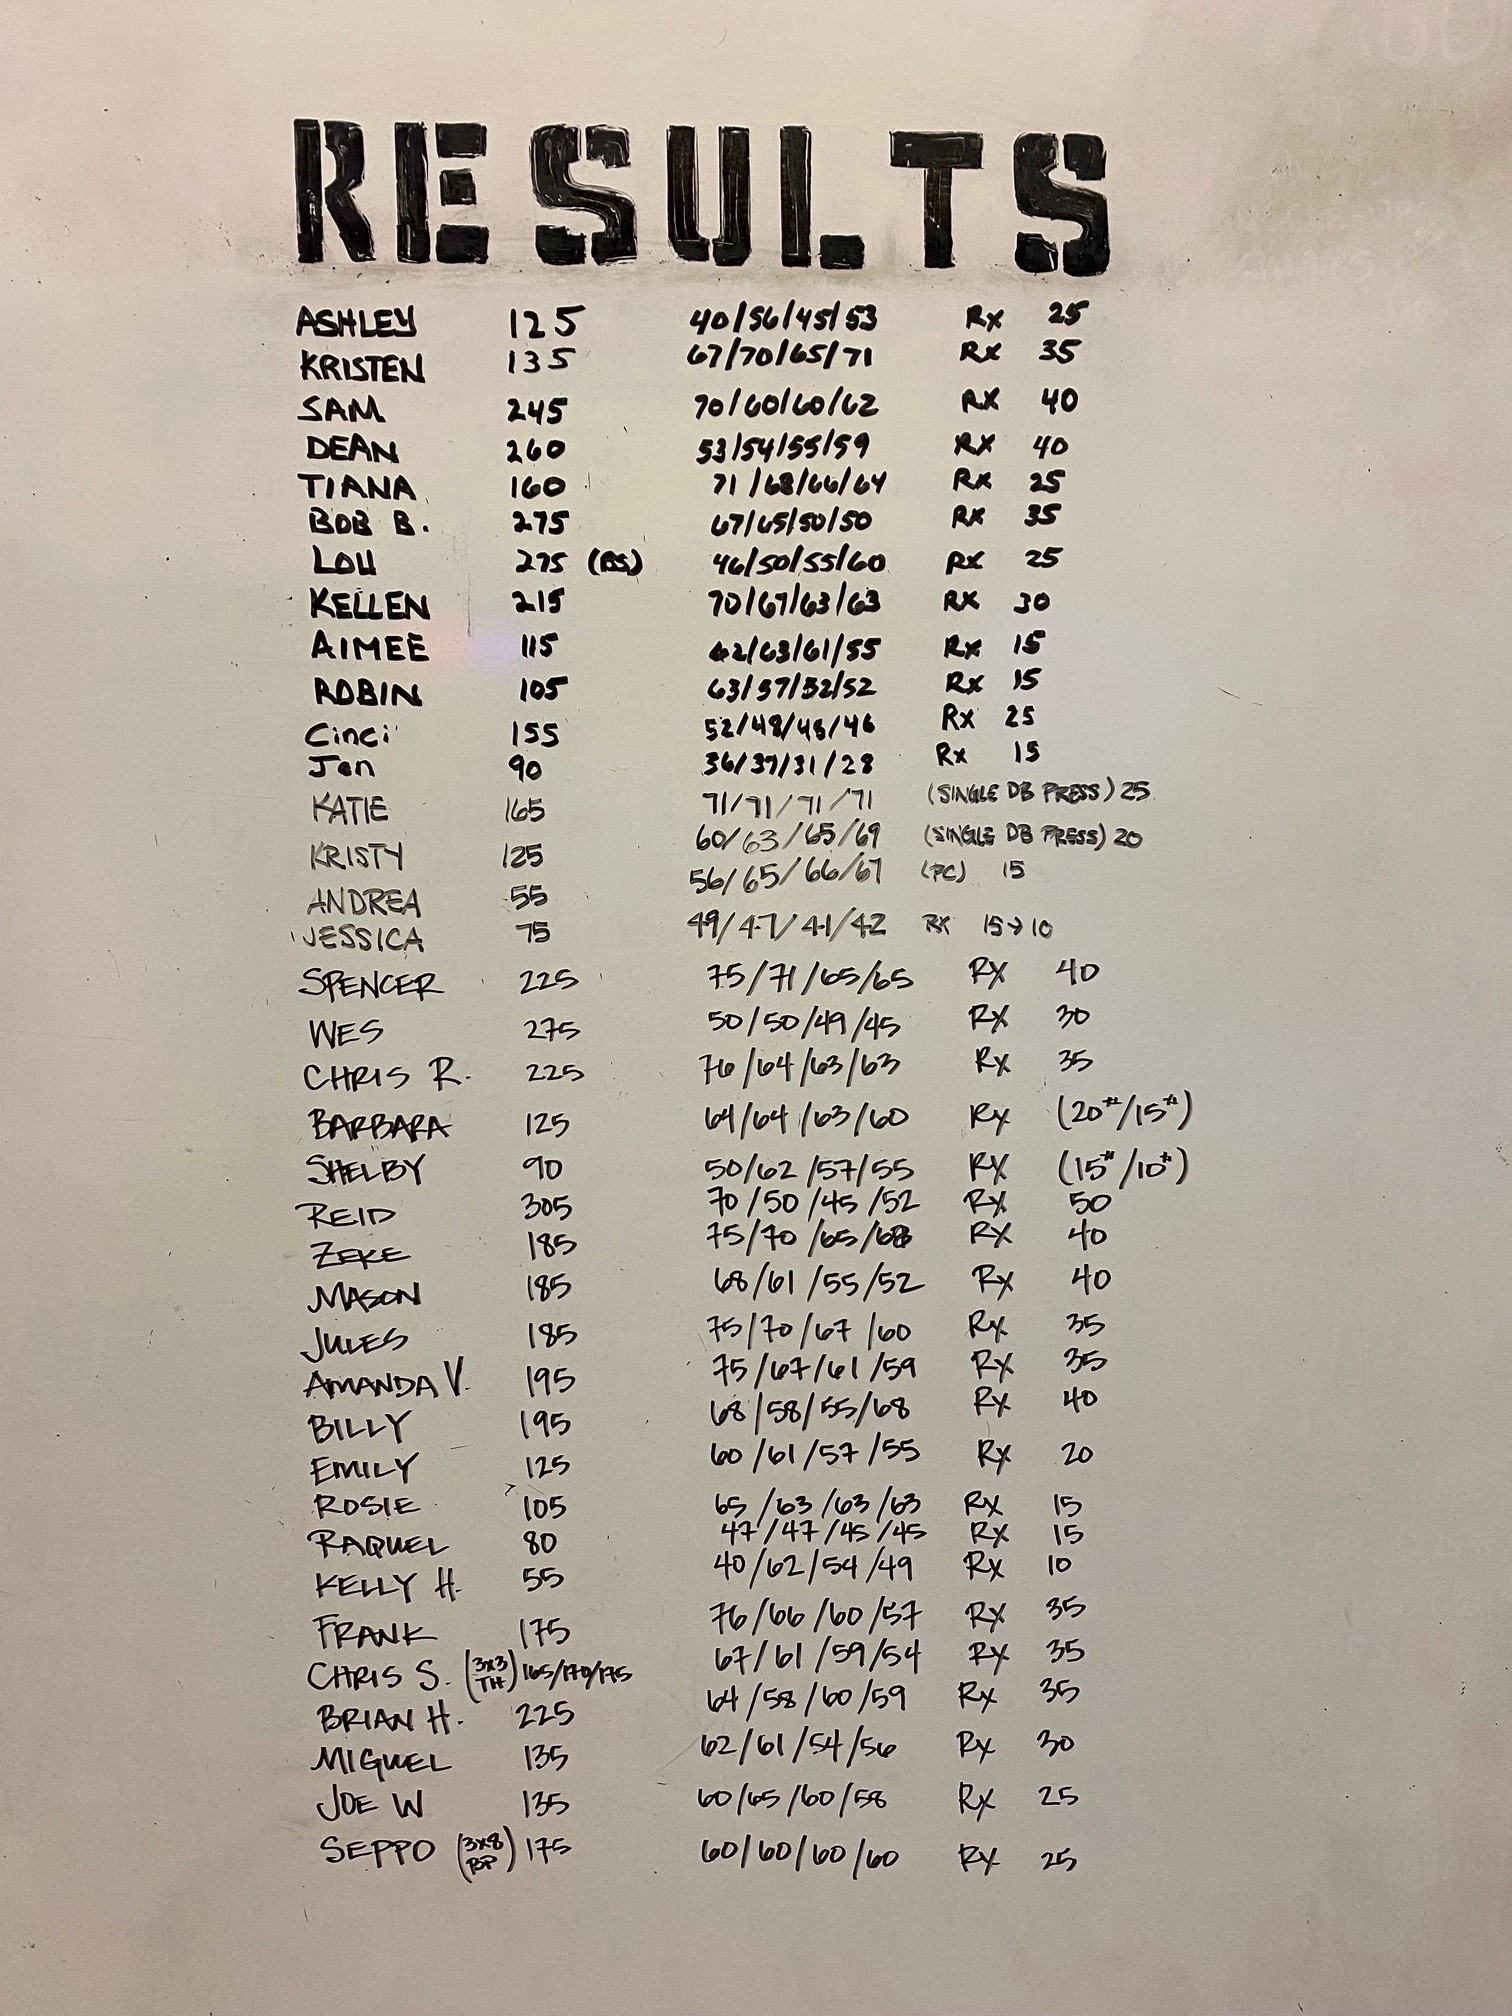 RESULTS
ASHLEY 125 40/56/45/53 Rx 25
KRISTEN 135 67/70/65/71 Rx 35
SAM 245 70/60/60/62 Rx 40
DEAN 260 53/54/55/59 Rx 40
TIANA 160 71/68/66/64 Rx 25
BOB B. 275 67/65/50/50 Rx 35
LOU 275 (BS) 46/50/55/60 Rx 25
KELLEN 215 70/67/63/63 Rx 30
AIMEE 115 62/63/61/55 Rx 15
ROBIN 105 63/57/52/52 Rx 15
Cinci 155 52/48/48/46 Rx 25
Jen 90 36/37/31/28 Rx 15
KATIE 165 71/71/71/71 (SINGLE DB PRESS) 25
KRISTY 125 60/63/65/69 (SINGLE DB PRESS) 20
ANDREA 55 56/65/66/67 (PC) 15
JESSICA 75 49/47/41/42 RX 15→10
SPENCER 225 75/71/65/65 RX 40
WES 275 50/50/49/45 RX 30
CHRIS R. 225 76/64/63/63 Rx 35
BARBARA 125 64/64/63/60 Rx (20#/15#)
SHELBY 90 50/62/57/55 RX (15#/10#)
REID 305 70/50/45/52 Rx 50
ZEKE 185 75/70/65/68 Rx 40
MASON 185 68/61/55/52 Rx 40
JULES 185 75/70/67/60 Rx 35
AMANDA V. 195 75/67/61/59 Rx 35
BILLY 195 68/58/55/68 Rx 40
EMILY 125 60/61/57/55 Rx 20
ROSIE 105 65/63/63/63 Rx 15
RAQUEL 80 47/47/45/45 Rx 15
KELLY H. 55 40/62/54/49 Rx 10
FRANK 175 76/66/60/57 Rx 35
CHRIS S. (3x3 TH) 165/170/175 67/61/59/54 Rx 35
BRIAN H. 225 64/58/60/59 Rx 35
MIGUEL 135 62/61/54/56 Rx 30
JOE W 135 60/65/60/58 Rx 25
SEPPO (3x8 BP) 175 60/60/60/60 Rx 25